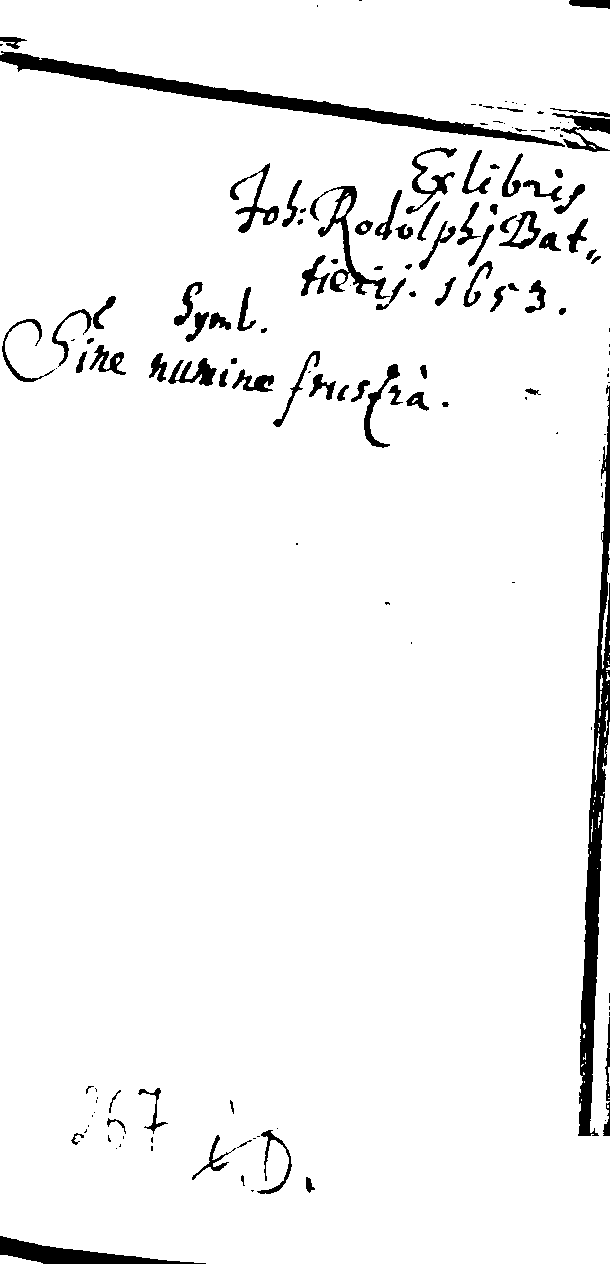 Ex libris
Joh: Rodolphj Bat„
tierij. 1653.
Symb.
Sine numine frustrà.
267
D.